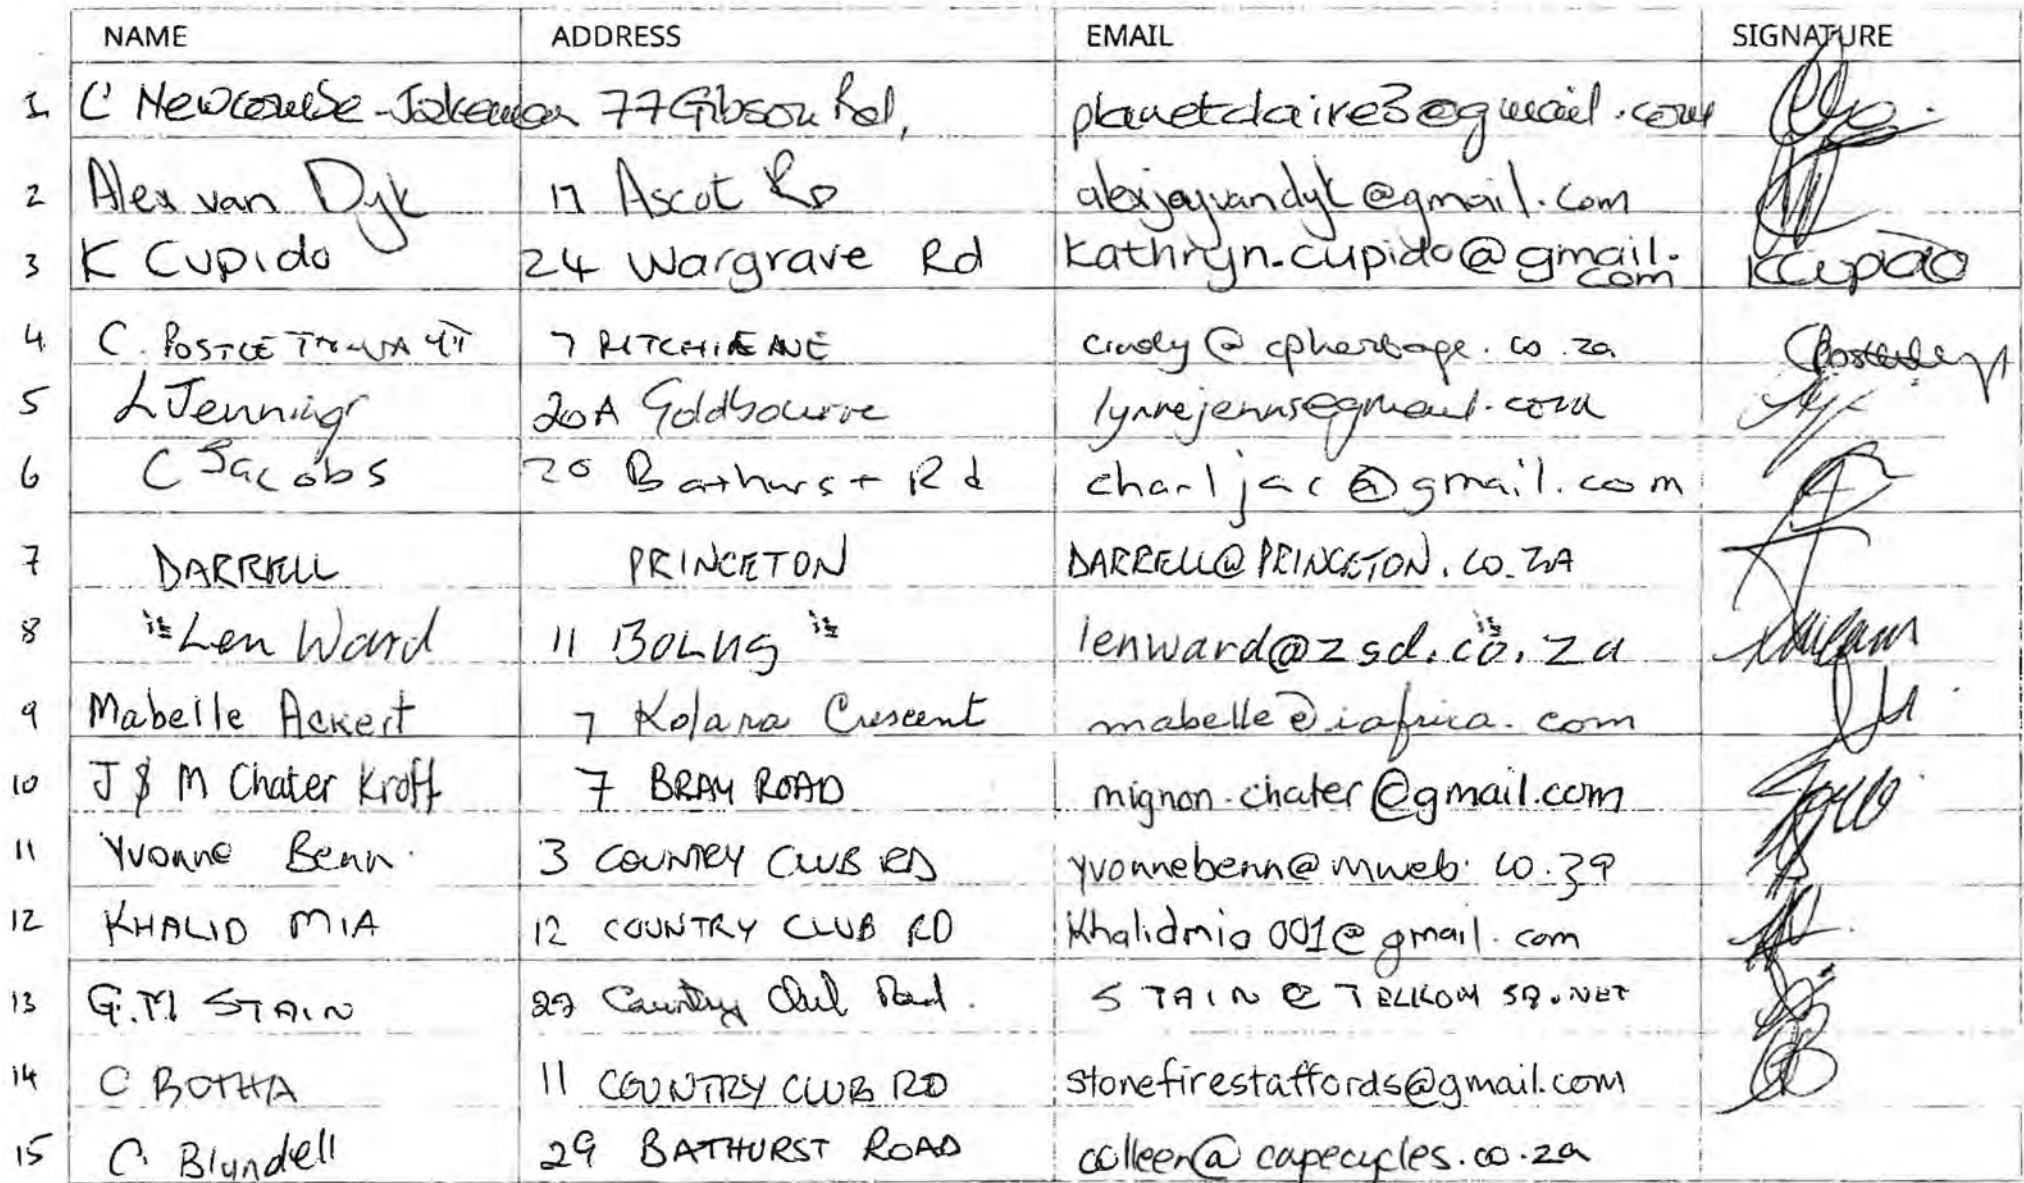 NAME ADDRESS EMAIL SIGNATURE
1 C Newcombe-Jakeman 77 Gibson Rd, planetclaire3@gmail.com
2 Alex van Dyk 17 Ascot Rd alexjayvandyk@gmail.com
3 K Cupido 24 Wargrave Rd kathryn.cupido@gmail. KCupido
com
4 C. 7 RITCHIE AVE cindy@cpheritage.co.za
5 L Jennings 20A Goldbourne lynnejenns@gmail.com
6 C Jacobs 20 Bathurst Rd charljac@gmail.com
7 DARRELL PRINCETON DARRELL@PRINCETON.CO.ZA
8 Len Ward 11 BOLUS lenward@zsd.co.za
9 Mabelle Ackert 7 Kolara Crescent mabelle@iafrica.com
10 J & M Chater Kroff 7 BRAY ROAD mignon.chater@gmail.com
11 Yvonne Benn 3 COUNTRY CLUB RD yvonnebenn@mweb.co.za
12 KHALID MIA 12 COUNTRY CLUB RD Khalidmia001@gmail.com
13 G.M STAIN 27 Country Club Road. STAIN@TELKOMSA.NET
14 C BOTHA 11 COUNTRY CLUB RD stonefirestaffords@gmail.com
15 C. Blundell 29 BATHURST ROAD colleen@capecycles.co.za